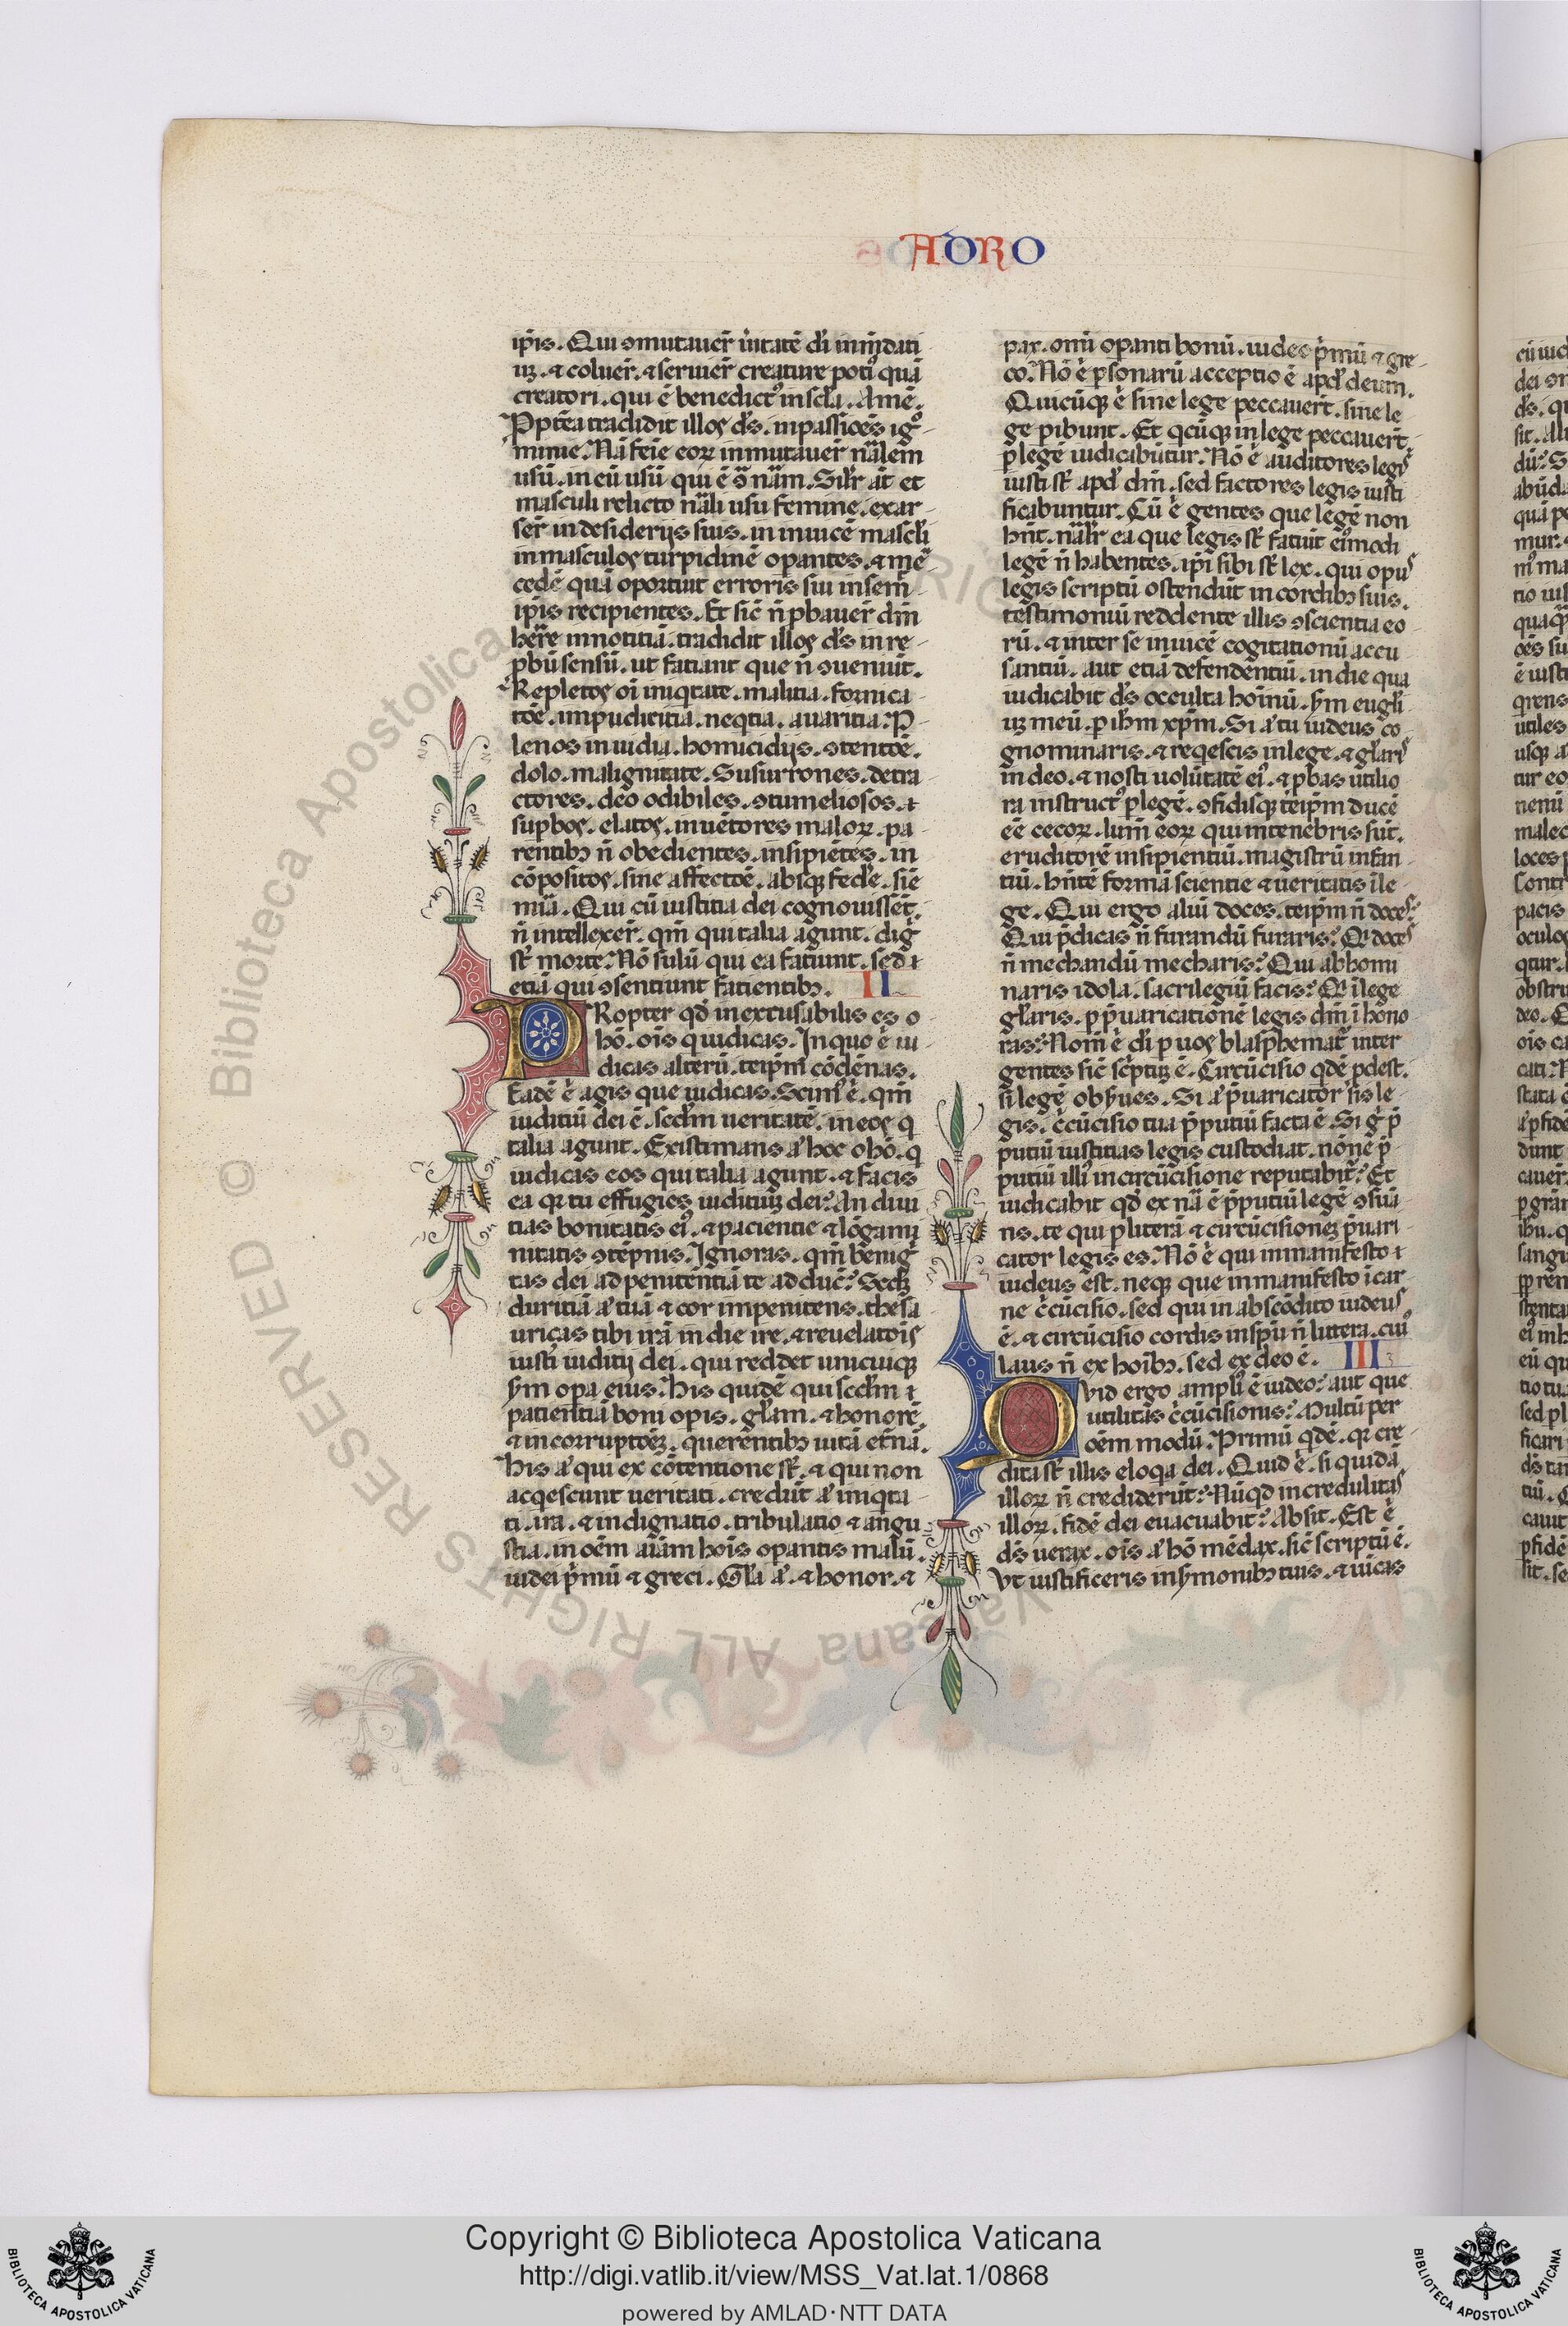 ADRO
ip̄is. Qui ꝯmutauer̄ ūitatē dī in mēdati
uꝫ. ⁊ coluer̄. ⁊ seruier̄ creature potiꝰ quā
creatori. qui ē benedictꝰ in sc̄la. Amē.
Ppt̄ea tradidit illos dˢ. in passiōes ig̊
minie. Nā feīe eoꝝ inmutauer̄ nāłem
usū. in eū usū qui ē ꝯ̄ nām. Silr̄ āt et
masculi relicto nāłi usu femine. exar
ser̄ in desiderijs suis. in inuicē mascłi
in masculos turpidinē opantes. ⁊ m̄e
cedē quā oportuit erroris sui in sem̄
ip̄is recipientes. Et sic̄ n̄ ꝓbauer̄ dm̄
hēre in notitiā. tradidit illos dˢ in re
ꝓbū sensū. ut fatiant que n̄ ꝯueniūt.
Repletos oī iniqtate. malitia. fornica
tōe. impudicitia. neqtia. auaritia. P
lenos inuidia. homicidijs. ꝯtentōe.
dolo. malignitate. Susurrones. detra
ctores. deo odibiles. ꝯtumeliosos. ⁊
suꝑbos. elatos. inuētores maloꝝ. pa
rentibꝫ n̄ obedientes. insipiētes. in
cōpositos. sine affectōe. absqꝫ fede. sīe
mīa. Qui cū iustitia dei cognouissēt.
n̄ intellexer̄. qm̄ qui talia agunt. dig̅
st̄ morte. Nō sulū qui ea fatiunt. sed ⁊
etiā qui ꝯsentiunt fatientibꝫ. II
PRopter qd̄ inexcusabilis es o
hō. oīs q iudicas. In quo ē iu
dicas alterū. teip̄m cōdēnas.
Eadē ē agis que iudicas. Scimꝰ ē. qm̄
iuditiū dei ē. scdm ueritatē. in eos q
talia agunt. Existimans aͧ hoc o hō. q
iudicas eos qui talia agunt. ⁊ facis
ea qꝛ tu effugies iuditiuꝫ dei. An diui
tias bonitatis eiꝰ. ⁊ pacientie ⁊ lōgami
nitatis ꝯtēpnis. Ignoras. qm̄ benig̅
tas dei ad penitentiā te adduc̄. Scdꝫ
duritiā aͧ tuā ⁊ cor impenitens. thesa
urizas tibi irā in die ire. ⁊ reuelatōis
iusti iuditij dei. qui reddet unicuiqꝫ
s̄m opa eius. His quidē qui scdm ⁊
patientiā boni opis. głam. ⁊ honorē.
⁊ incorruptōeꝫ. querentibꝫ uitā et̄nā.
His aͧ qui ex cōtentione st̄. ⁊ qui non
acqescunt ueritati. credūt aͧ iniqta
ti. ira. ⁊ indignatio. tribulatio ⁊ angu
stia. in oēm aīam hoīs opantis malū.
iudei p̄mū ⁊ greci. Głā aͧ. ⁊ honor. ⁊
pax. omī opanti bonū. iudeo p̄mū ⁊ gre
co. Nō ē ꝑsonarū acceptio ē apd̄ deum.
Quicūqꝫ ē sine lege peccauert̄. sine le
ge ꝑibunt. Et qcūqꝫ in lege peccauerт̄.
ꝑ legē iudicabūtur. Nō ē auditores legꝭ
iusti st̄ apd̄ dm̄. sed factores legis iusti
ficabuntur. Cū ē gentes que legē non
hn̄t. nāłr ea que legis st̄ fatiūt eiꝰmodi
legē n̄ habentes. ip̄i sibi st̄ lex. qui opuˢ
legis scriptū ostendūt in cordibꝫ suis.
testimoniū reddente illis ꝯscientia eo
rū. ⁊ inter se inuicē cogitationū accu
santiū. aut etiā defendentiū. in die qua
iudicabit dˢ occulta hoīnū. s̄m eugłi
uꝫ meū. ꝑ ih̄m xp̄m. Si aͧ tu iudeus co
gnominaris. ⁊ reqescis in lege. ⁊ głarꝭ
in deo. ⁊ nosti uolūtatē eiꝰ. ⁊ ꝓbas utilio
ra instructꝰ ꝑ legē. ꝯfidisqꝫ teip̄m ducē
eē cecoꝝ. lum̄ eoꝝ qui in tenebris sūt.
eruditorē insipientiū. magistrū infan
tiū. hn̄tē formā scientie ⁊ ueritatis ī le
ge. Qui ergo aliū doces. teip̄m n̄ doceˢ.
Qui p̄dicas n̄ furandū furaris. Qꝛ doceˢ
n̄ mechandū mecharis. Qui abhomi
naris idola. sacrilegiū facis. Qꝛ ī lege
głaris. ꝑ p̄uaricationē legis dm̄ ī hono
ras. Nom̄ ē dī ꝑ uos blasphemat̄ inter
gentes sic̄ sc̄ptuꝫ ē. Circūcisio qdē ꝓdest.
si legē obs̄ues. Si aͧ p̄uaricator sis le
gis. c̄cūcisio tua p̄putiū facta ē. Si g̊ p̄
putiū iustitias legis custodiat. nōne p̄
putiū illiꝰ in circūcisione reputabit̄. Et
iudicabit qd̄ ex nā ē p̄putiū legē ꝯsūa
ns. te qui ꝑ literā ⁊ circūcisioneꝫ p̄uari
cator legis es. Nō ē qui in manifesto ⁊
iudeus est. neqꝫ que in manifesto ī car
ne c̄cūcisio. sed qui in abscōdito iudeuˢ
ē. ⁊ circūcisio cordis in sp̄u n̄ littera. cuiꝰ
laus n̄ ex hoībꝫ. sed ex deo ē. III
Qvid ergo ampliꝰ ē iudeo. aut que
utilitas c̄cūcisionis. Multū per
oēm modū. Primū qdē. qꝛ cre
dita st̄ illis eloqa dei. Quid ē. si quidā
illoꝝ n̄ crediderūt. Nūqd incredulitaˢ
illoꝝ. fidē dei euacuabit. Absit. Est ē
dˢ uerax. oīs aͧ hō mēdax. sic̄ scriptū ē.
Vt iustificeris in s̄monibꝫ tuis. ⁊ uīcas
© Biblioteca Apostolica Vaticana ALL RIGHTS RESERVED
Copyright © Biblioteca Apostolica Vaticana
http://digi.vatlib.it/view/MSS_Vat.lat.1/0868
powered by AMLAD·NTT DATA
BIBLIOTECA APOSTOLICA VATICANA
BIBLIOTECA APOSTOLICA VATICANA